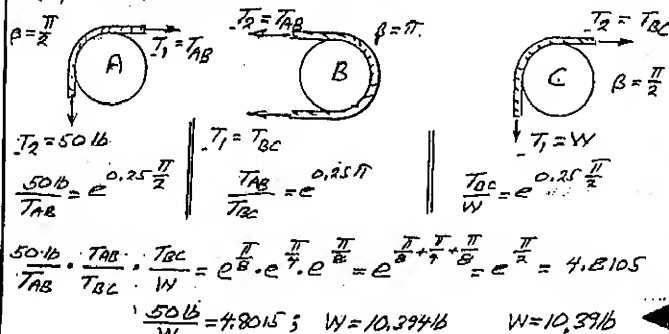 β = π/2
A
T₁ = T_AB
T₂ = 50 lb
50 lb/T_AB = e^(0.25 π/2)
T₂ = T_AB
β = π.
B
T₁ = T_BC
T_AB/T_BC = e^(0.25π)
T₂ = T_BC
C
β = π/2
T₁ = W
T_BC/W = e^(0.25 π/2)
50 lb/T_AB · T_AB/T_BC · T_BC/W = e^(π/8) · e^(π/4) · e^(π/8) = e^(π/8 + π/4 + π/8) = e^(π/2) = 4.8105
50 lb/W = 4.8015; W = 10.394 lb W = 10.39 lb